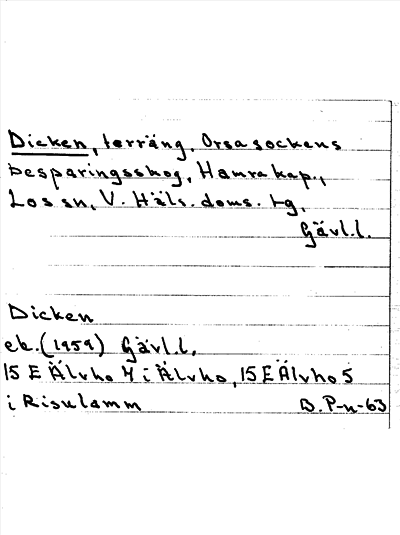 Dicken, terräng, Orsa sockens
besparingsskog, Hamra kap.,
Los sn, V. Häls. doms. tg,
Gävl.l.
Dicken
ek. (1959) Gävl.l.
15 E Älvho 4 i Älvho, 15 E Älvho 5
i Risulamm
B. P-n-63